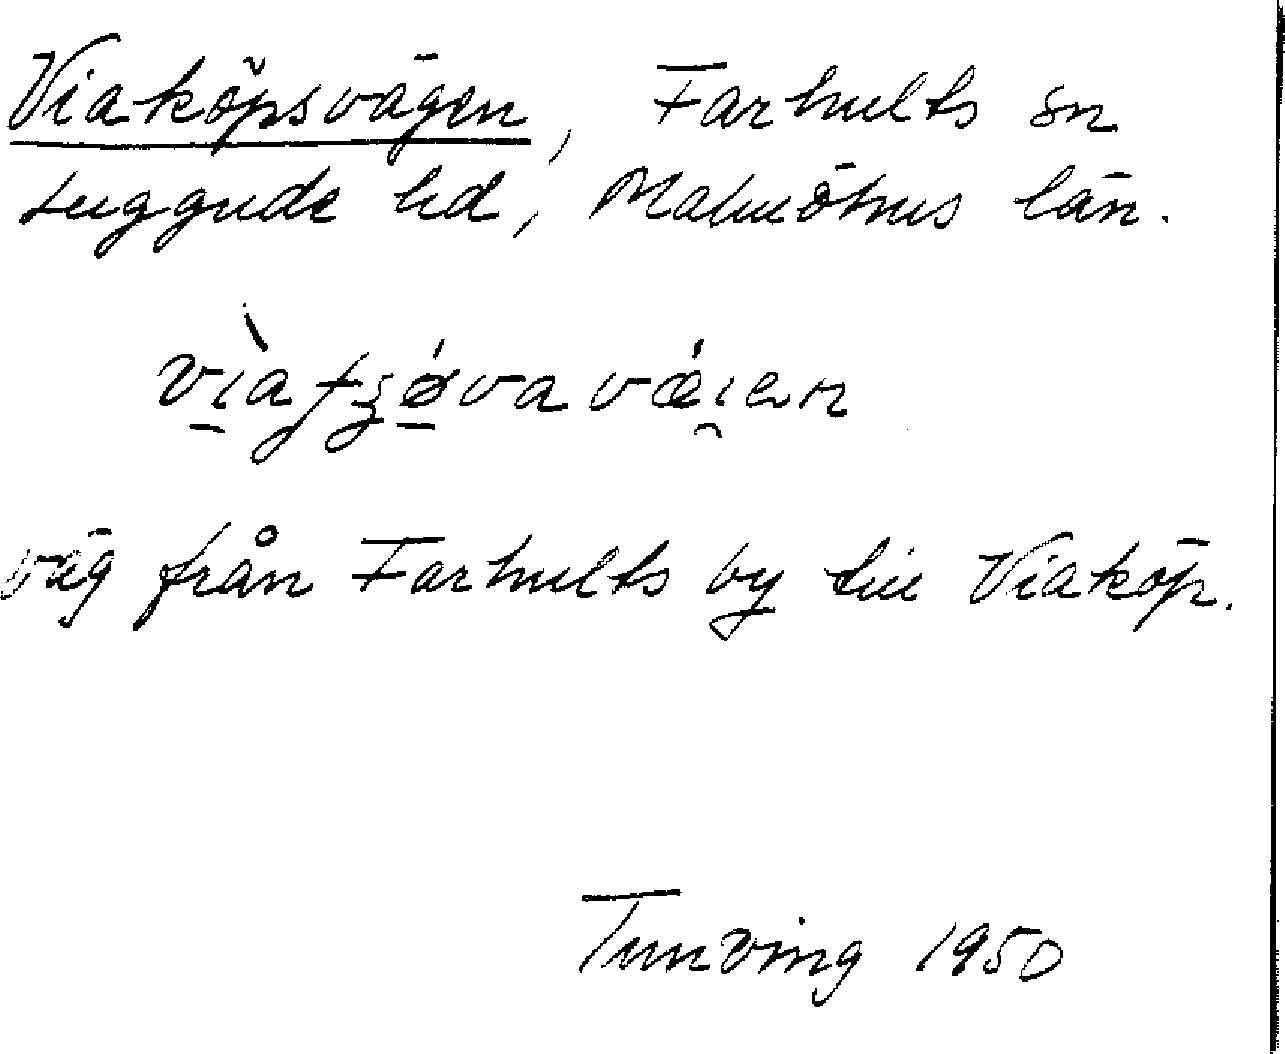 Viaköpsvägen, Farhults sn
Luggude hd, Malmöhus län.
väg från Farhults by till Viaköp.
Tunving 1950